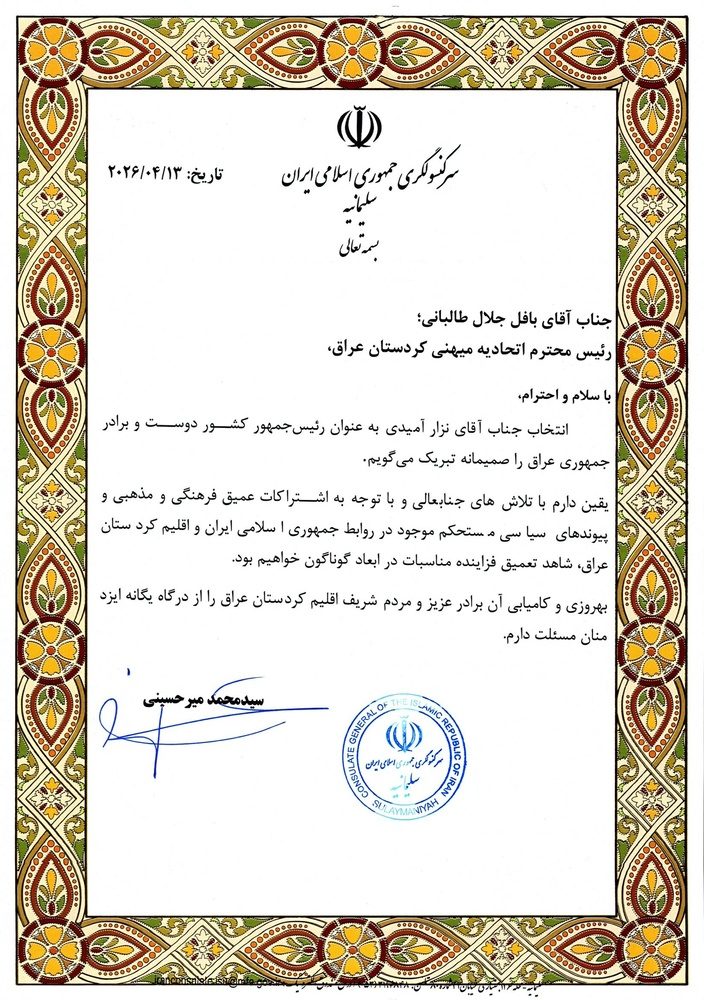 سرکنسولگری جمهوری اسلامی ایران
سلیمانیه
بسمه تعالی
تاریخ: ۲۰۲۶/۰۴/۱۳
جناب آقای بافل جلال طالبانی؛
رئیس محترم اتحادیه میهنی کردستان عراق،
با سلام و احترام،
انتخاب جناب آقای نزار آمیدی به عنوان رئیس‌جمهور کشـــور دوســـت و برادر
جمهوری عراق را صمیمانه تبریک می‌گویم.
یقین دارم با تلاش های جنابعالی و با توجه به اشـــتراکات عمیق فرهنگی و مذهبی و
پیوندهای سیا سی مستحکم موجود در روابط جمهوری ا سلامی ایران و اقلیم کرد ستان
عراق، شاهد تعمیق فزاینده مناسبات در ابعاد گوناگون خواهیم بود.
بهروزی و کامیابی آن برادر عزیز و مردم شریف اقلیم کردستان عراق را از درگاه یگانه ایزد
منان مسئلت دارم.
سیدمحمد میرحسینی
CONSULATE GENERAL OF THE ISLAMIC REPUBLIC OF IRAN
سرکنسولگری جمهوری اسلامی ایران
سلیمانیه
SULAYMANIYAH